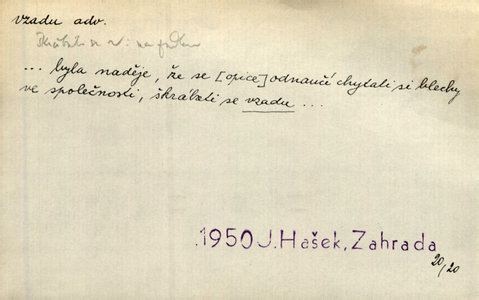 vzadu adv.
Škrábati se v.
... byla naděje, že se [opice] odnaučí chytati si blechy
ve společnosti, škrábati se vzadu ...
1950 J. Hašek, Zahrada
20/20